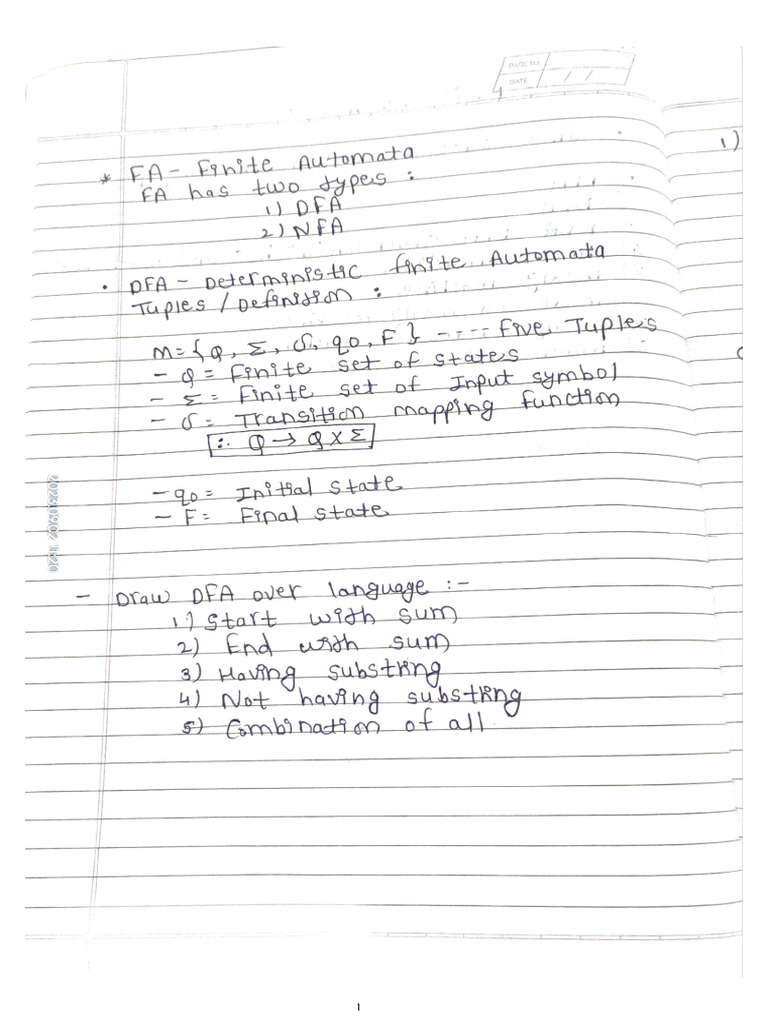 PAGE No.
DATE / /
1)
* FA - Finite Automata
FA has two types :
1) DFA
2) NFA
• DFA - Deterministic finite Automata
Tuples / Definition :
M = { Q, Σ, δ, q0, F } ---- Five Tuples
- Q = Finite set of states
- Σ = Finite set of Input symbol
- δ = Transition mapping function
∴ Q → Q X Σ
- q0 = Initial state
- F = Final state
- Draw DFA over language :-
1) Start with sum
2) End with sum
3) Having substring
4) Not having substring
5) Combination of all.
1